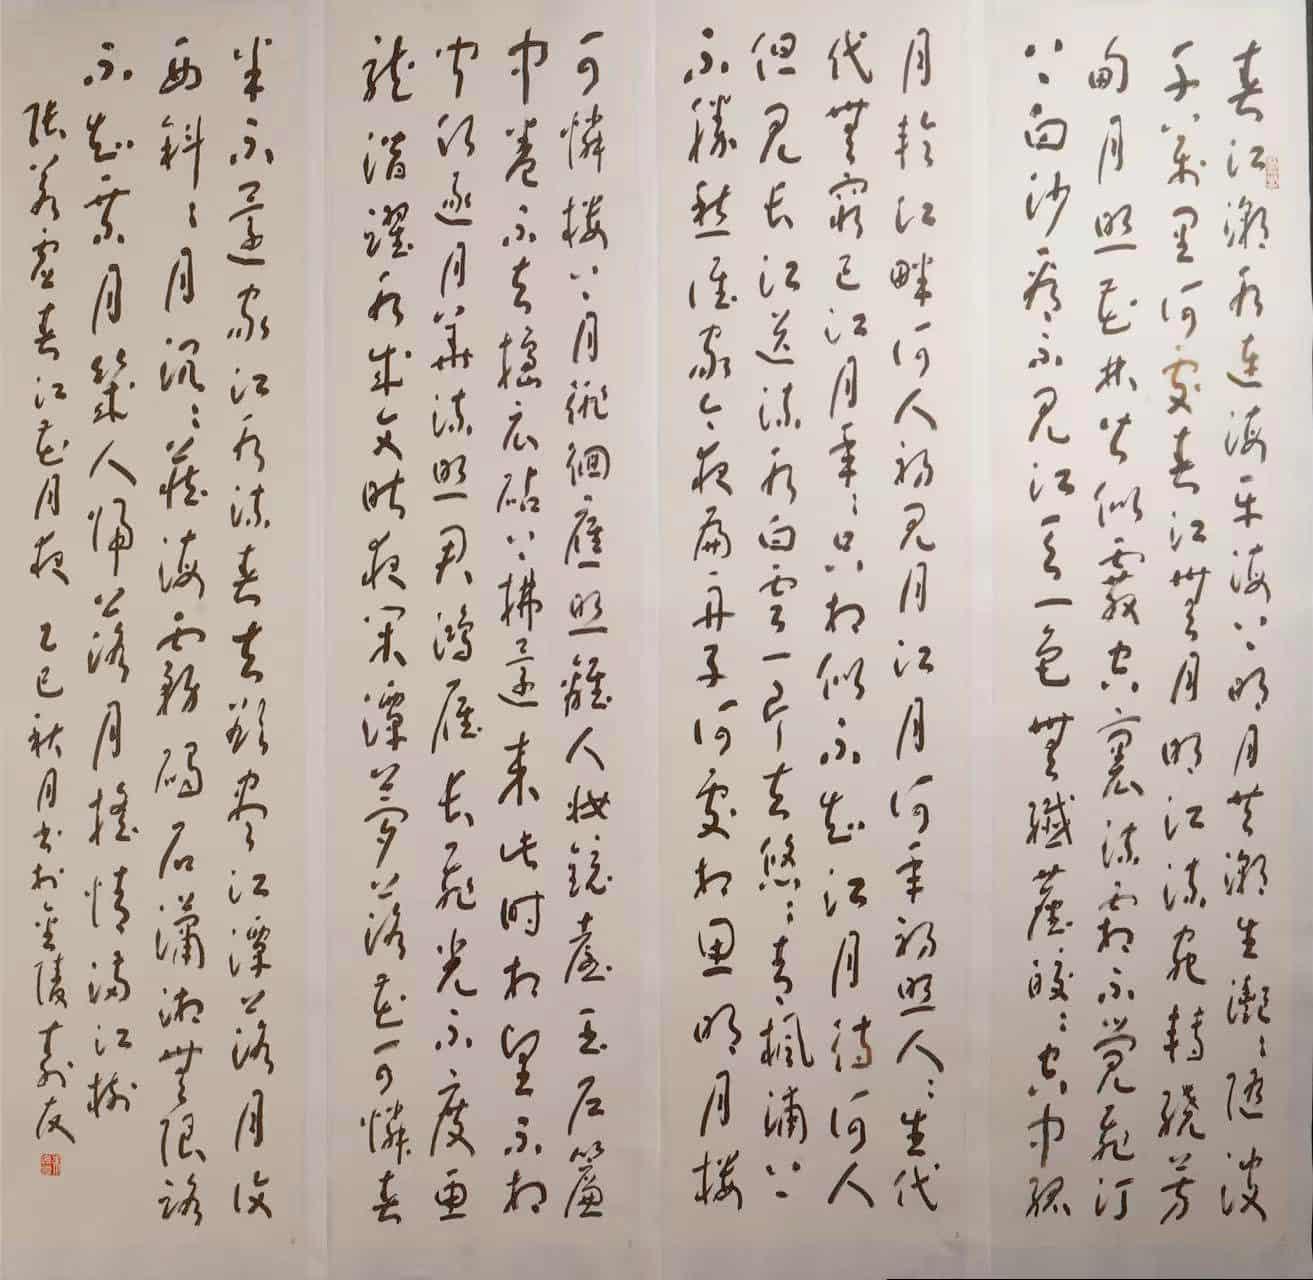 春江潮水連海平海上明月共潮生灩々隨波
千萬里何處春江無月明江流宛轉繞芳
甸月照花林皆似霰空裏流霜不覺飛汀
上白沙看不見江天一色無纖塵皎々空中孤
月輪江畔何人初見月江月何年初照人々生代
代無窮已江月年々只相似不知江月待何人
但見長江送流水白雲一片去悠々青楓浦上
不勝愁誰家今夜扁舟子何處相思明月樓
可憐樓上月徘徊應照離人妝鏡臺玉戶簾
中卷不去搗衣砧上拂還來此時相望不相
聞願逐月華流照君鴻雁長飛光不度魚
龍潛躍水成文昨夜閑潭夢落花可憐春
半不還家江水流春去欲盡江潭落月復
西斜々月沉々藏海霧碣石瀟湘無限路
不知乘月幾人歸落月搖情滿江樹
張若虛春江花月夜 乙巳秋月書於金陵 友